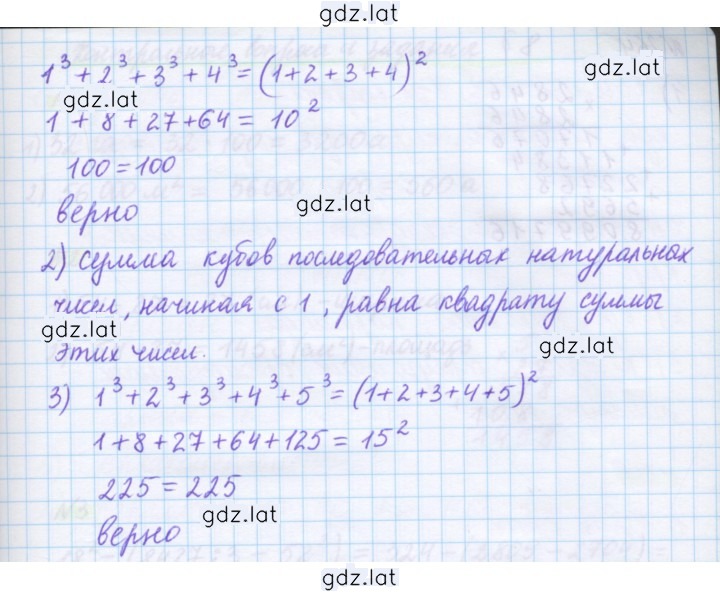 gdz.lat
1³ + 2³ + 3³ + 4³ = (1+2+3+4)²
gdz.lat
gdz.lat
1 + 8 + 27 + 64 = 10²
100 = 100
верно
gdz.lat
2) сумма кубов последовательных натуральных
чисел, начиная с 1, равна квадрату суммы
gdz.lat
этих чисел.
gdz.lat
3) 1³ + 2³ + 3³ + 4³ + 5³ = (1+2+3+4+5)²
1 + 8 + 27 + 64 + 125 = 15²
225 = 225
gdz.lat
верно
gdz.lat